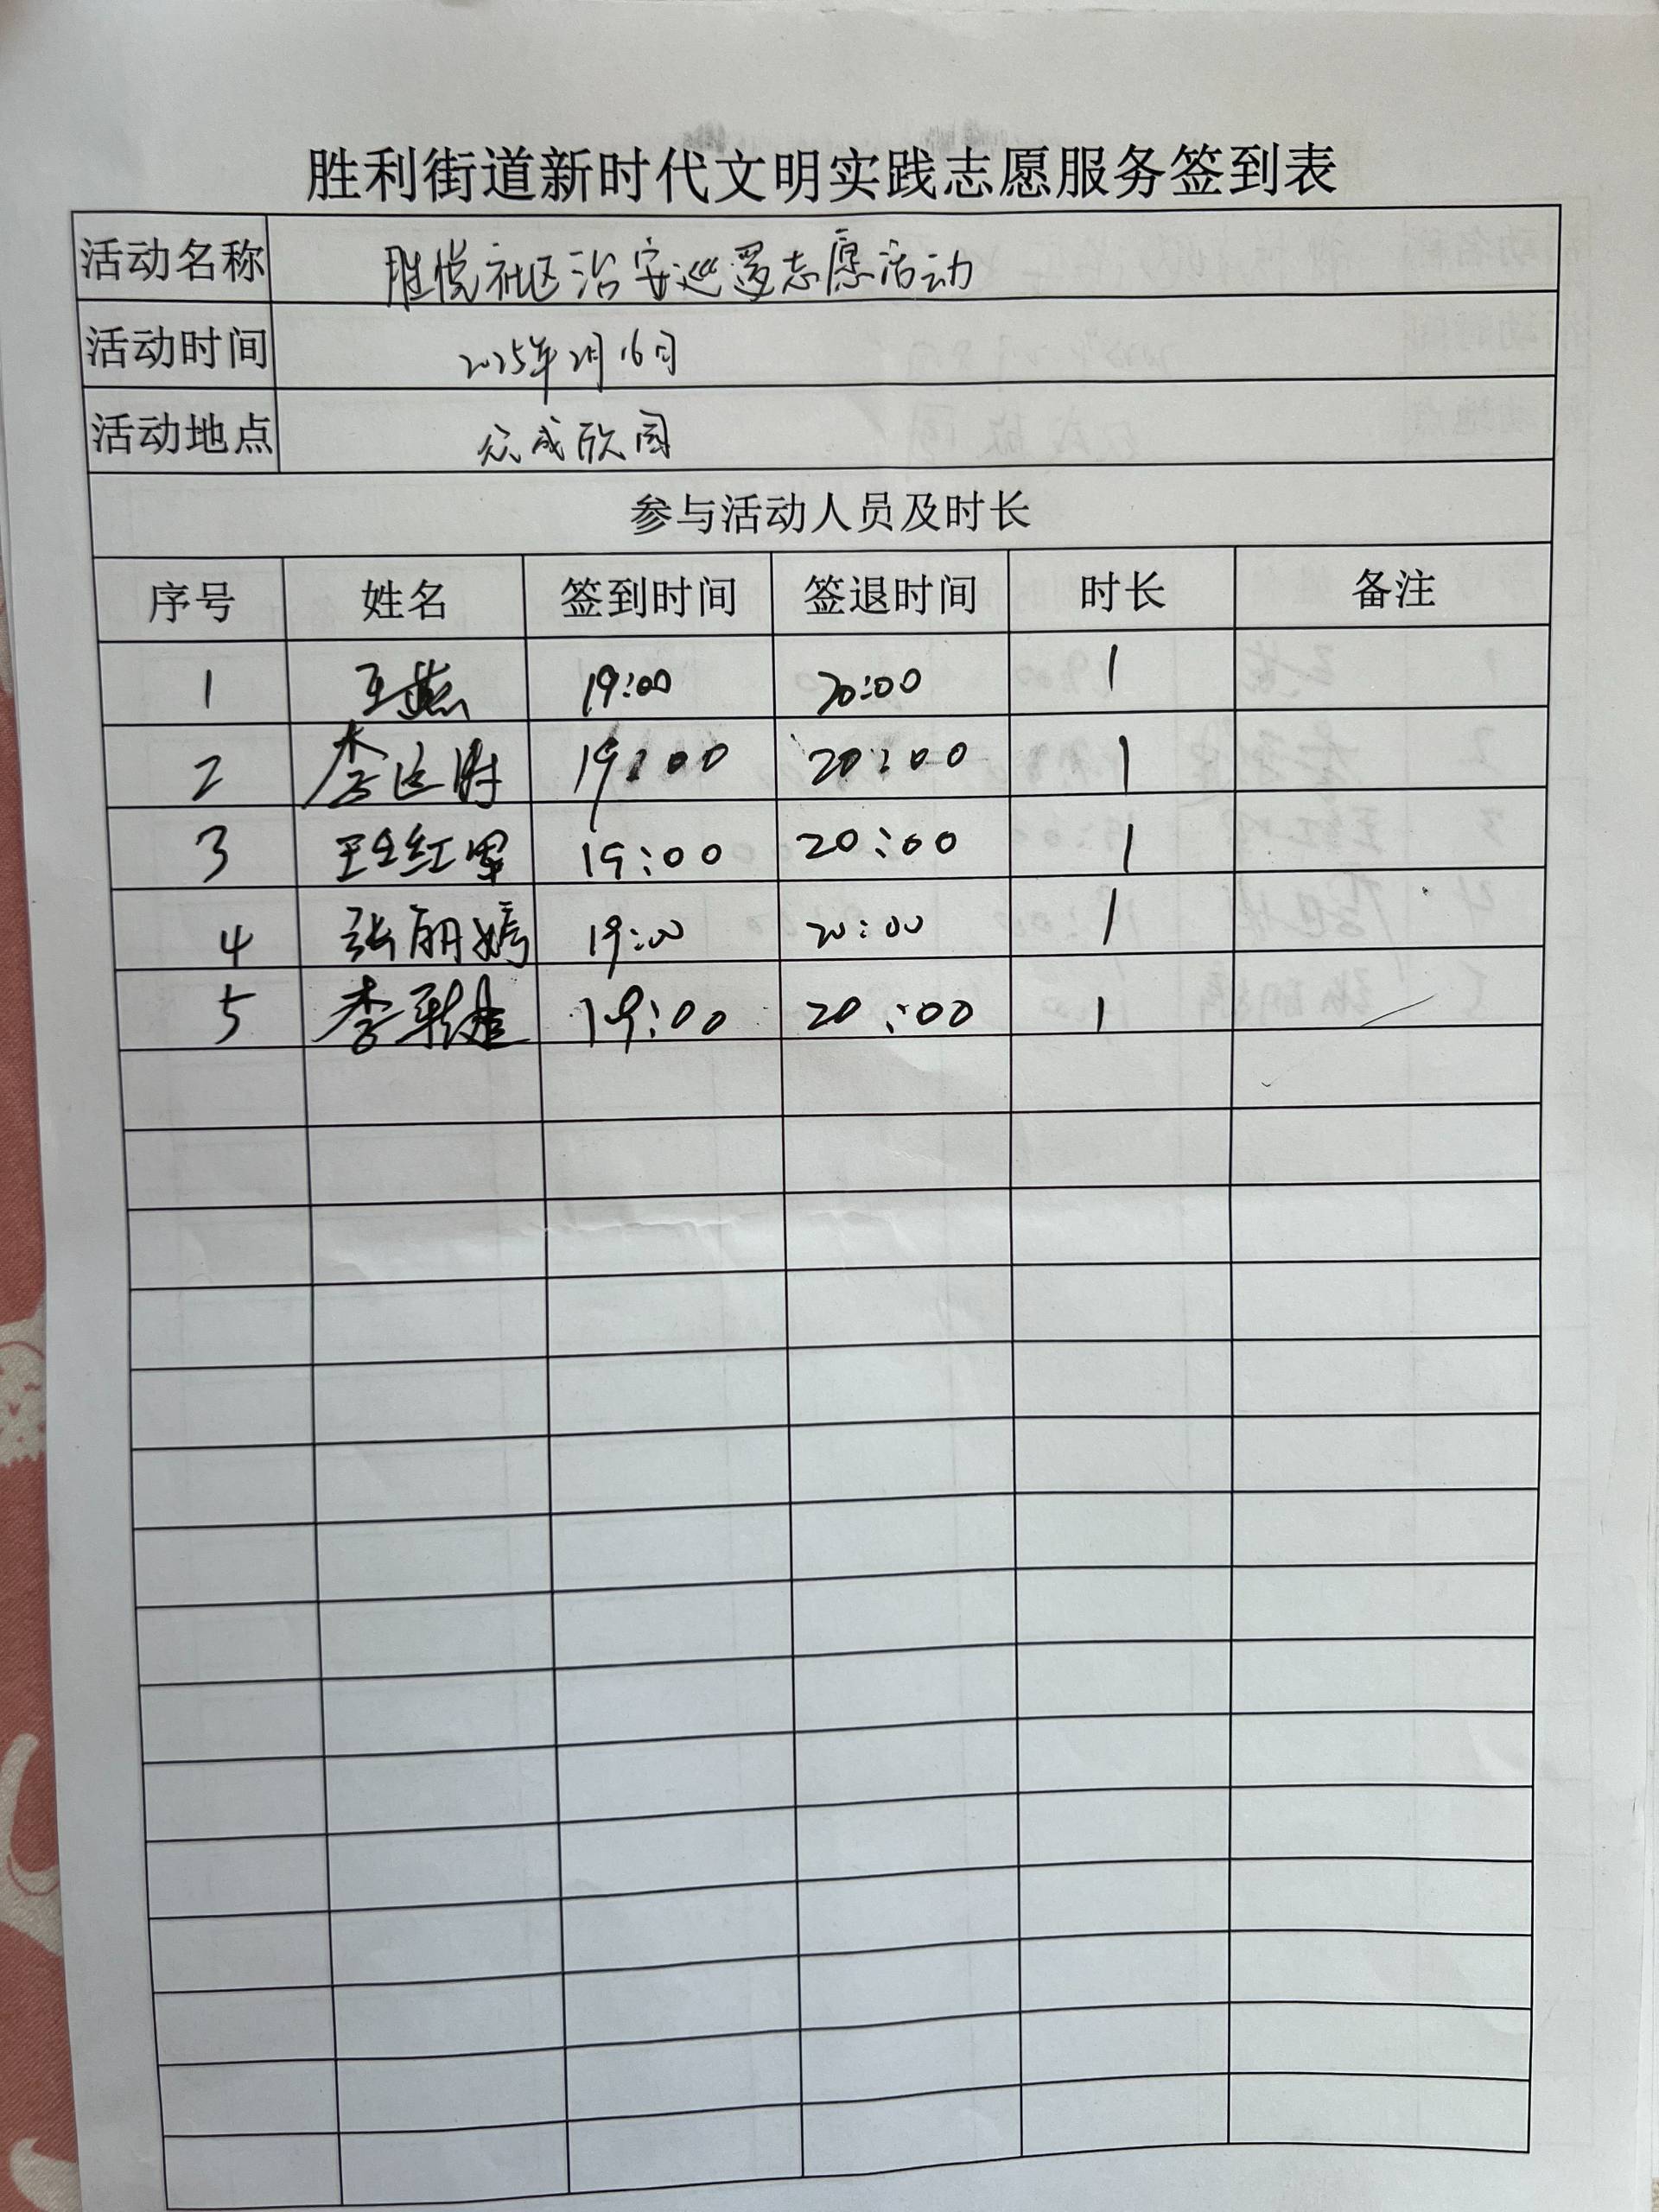 胜利街道新时代文明实践志愿服务签到表
活动名称 胜悦社区治安巡逻志愿活动
活动时间 2025年2月16日
活动地点 众成欣园
参与活动人员及时长
序号 姓名 签到时间 签退时间 时长 备注
1 王燕 19:00 20:00 1
2 李 胜 19:00 20:00 1
3 王红军 19:00 20:00 1
4 张丽嫣 19:00 20:00 1
5 李 19:00 20:00 1